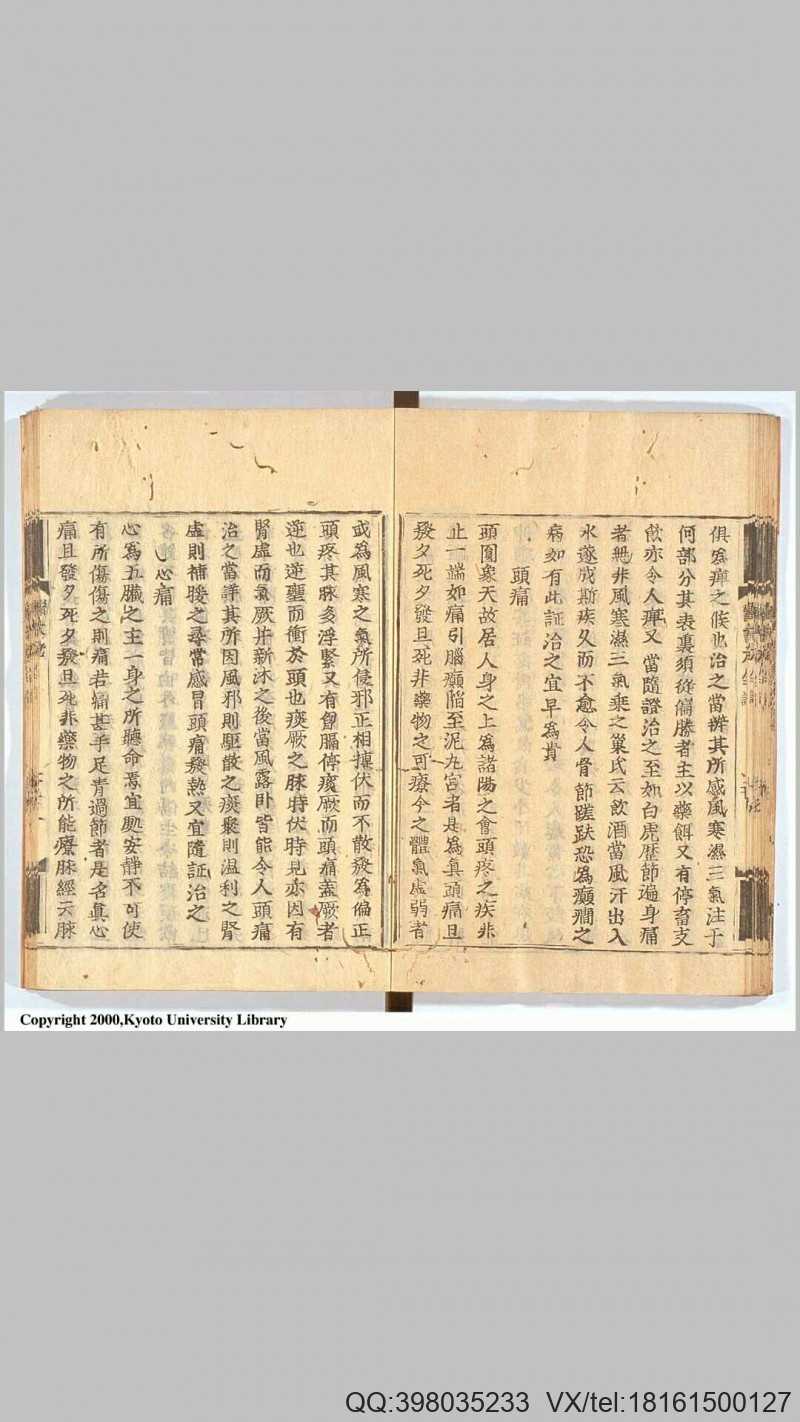 俱爲痺之候也治之當辨其所感風寒濕三氣注于
何部分其表裏須從偏勝者主以藥餌又有停畜支
飲亦令人痺又當隨證治之至如白虎歷節遍身痛
者無非風寒濕三氣乘之巢氏云飲酒當風汗出入
水遂成斯疾久而不愈令人骨節蹉跌恐爲癲癇之
病如有此証治之宜早爲貴
頭痛
頭圓象天故居人身之上爲諸陽之會頭疼之疾非
止一端如痛引腦巔陷至泥丸宮者是爲眞頭痛旦
發夕死夕發旦死非藥物之可療今之體氣虛弱者
或爲風寒之氣所侵邪正相摶伏而不散發爲偏正
頭疼其脉多浮緊又有胷膈停痰厥而頭痛盖厥者
逆也逆壅而衝於頭也痰厥之脉時伏時見亦因有
腎虛而氣厥并新沐之後當風露卧皆能令人頭痛
治之當詳其所因風邪則驅散之痰聚則温利之腎
虛則補暖之尋常感冒頭痛發熱又宜隨証治之
心痛
心爲五臟之主一身之所聽命焉宜處安靜不可使
有所傷傷之則痛若痛甚手足青過節者是名眞心
痛旦發夕死夕發旦死非藥物之所能療脉經云脉
Copyright 2000,Kyoto University Library
QQ:398035233 VX/tel:18161500127